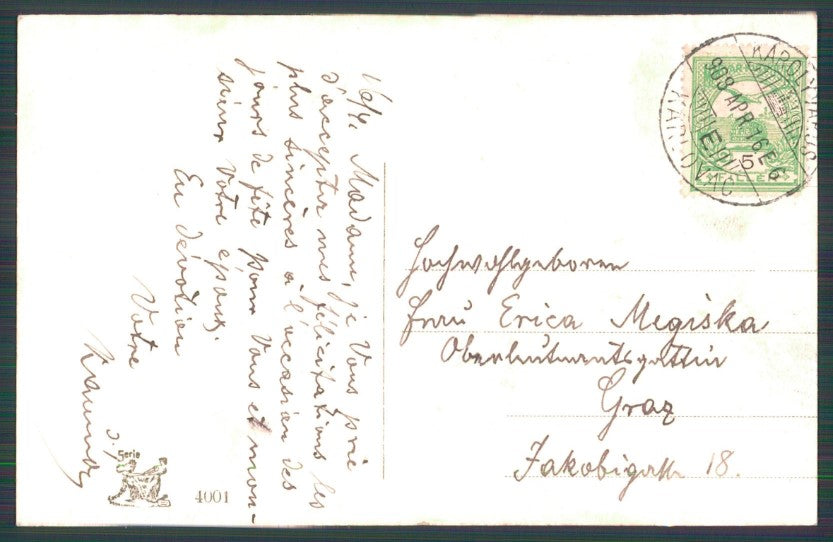 16/4. Madame, je Vous prie
d'accepter mes félicitations les
plus sincères à l'occasion des
jours de fête pour Vous et mon-
sieur Votre époux.
En dévotion
Votre
Hochwohlgeboren
Frau Erica Megiska
Oberleutnantsgattin
Graz
Jakobigasse 18.
KÁROLYVÁROS
908 APR 16 E 6
KARLOVAC
5
FILLÉR
Serie
4001